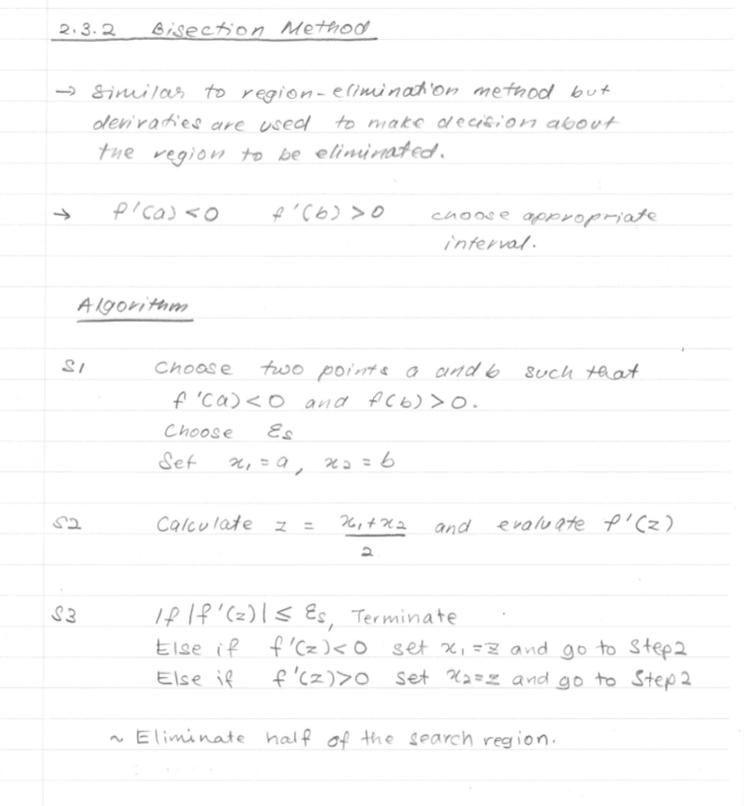 2.3.2 Bisection Method
→ Similar to region-elimination method but
deriraties are used to make decision about
the region to be eliminated.
→ f'(a) < 0 f'(b) > 0 choose appropriate
interval.
Algorithm
S1 Choose two points a and b such that
f'(a) < 0 and f(b) > 0.
Choose εs
Set x₁ = a, x₂ = b
S2 Calculate z = (x₁ + x₂)/2 and evaluate f'(z)
S3 If |f'(z)| ≤ εs, Terminate
Else if f'(z) < 0 set x₁ = z and go to Step 2
Else if f'(z) > 0 set x₂ = z and go to Step 2
~ Eliminate half of the search region.